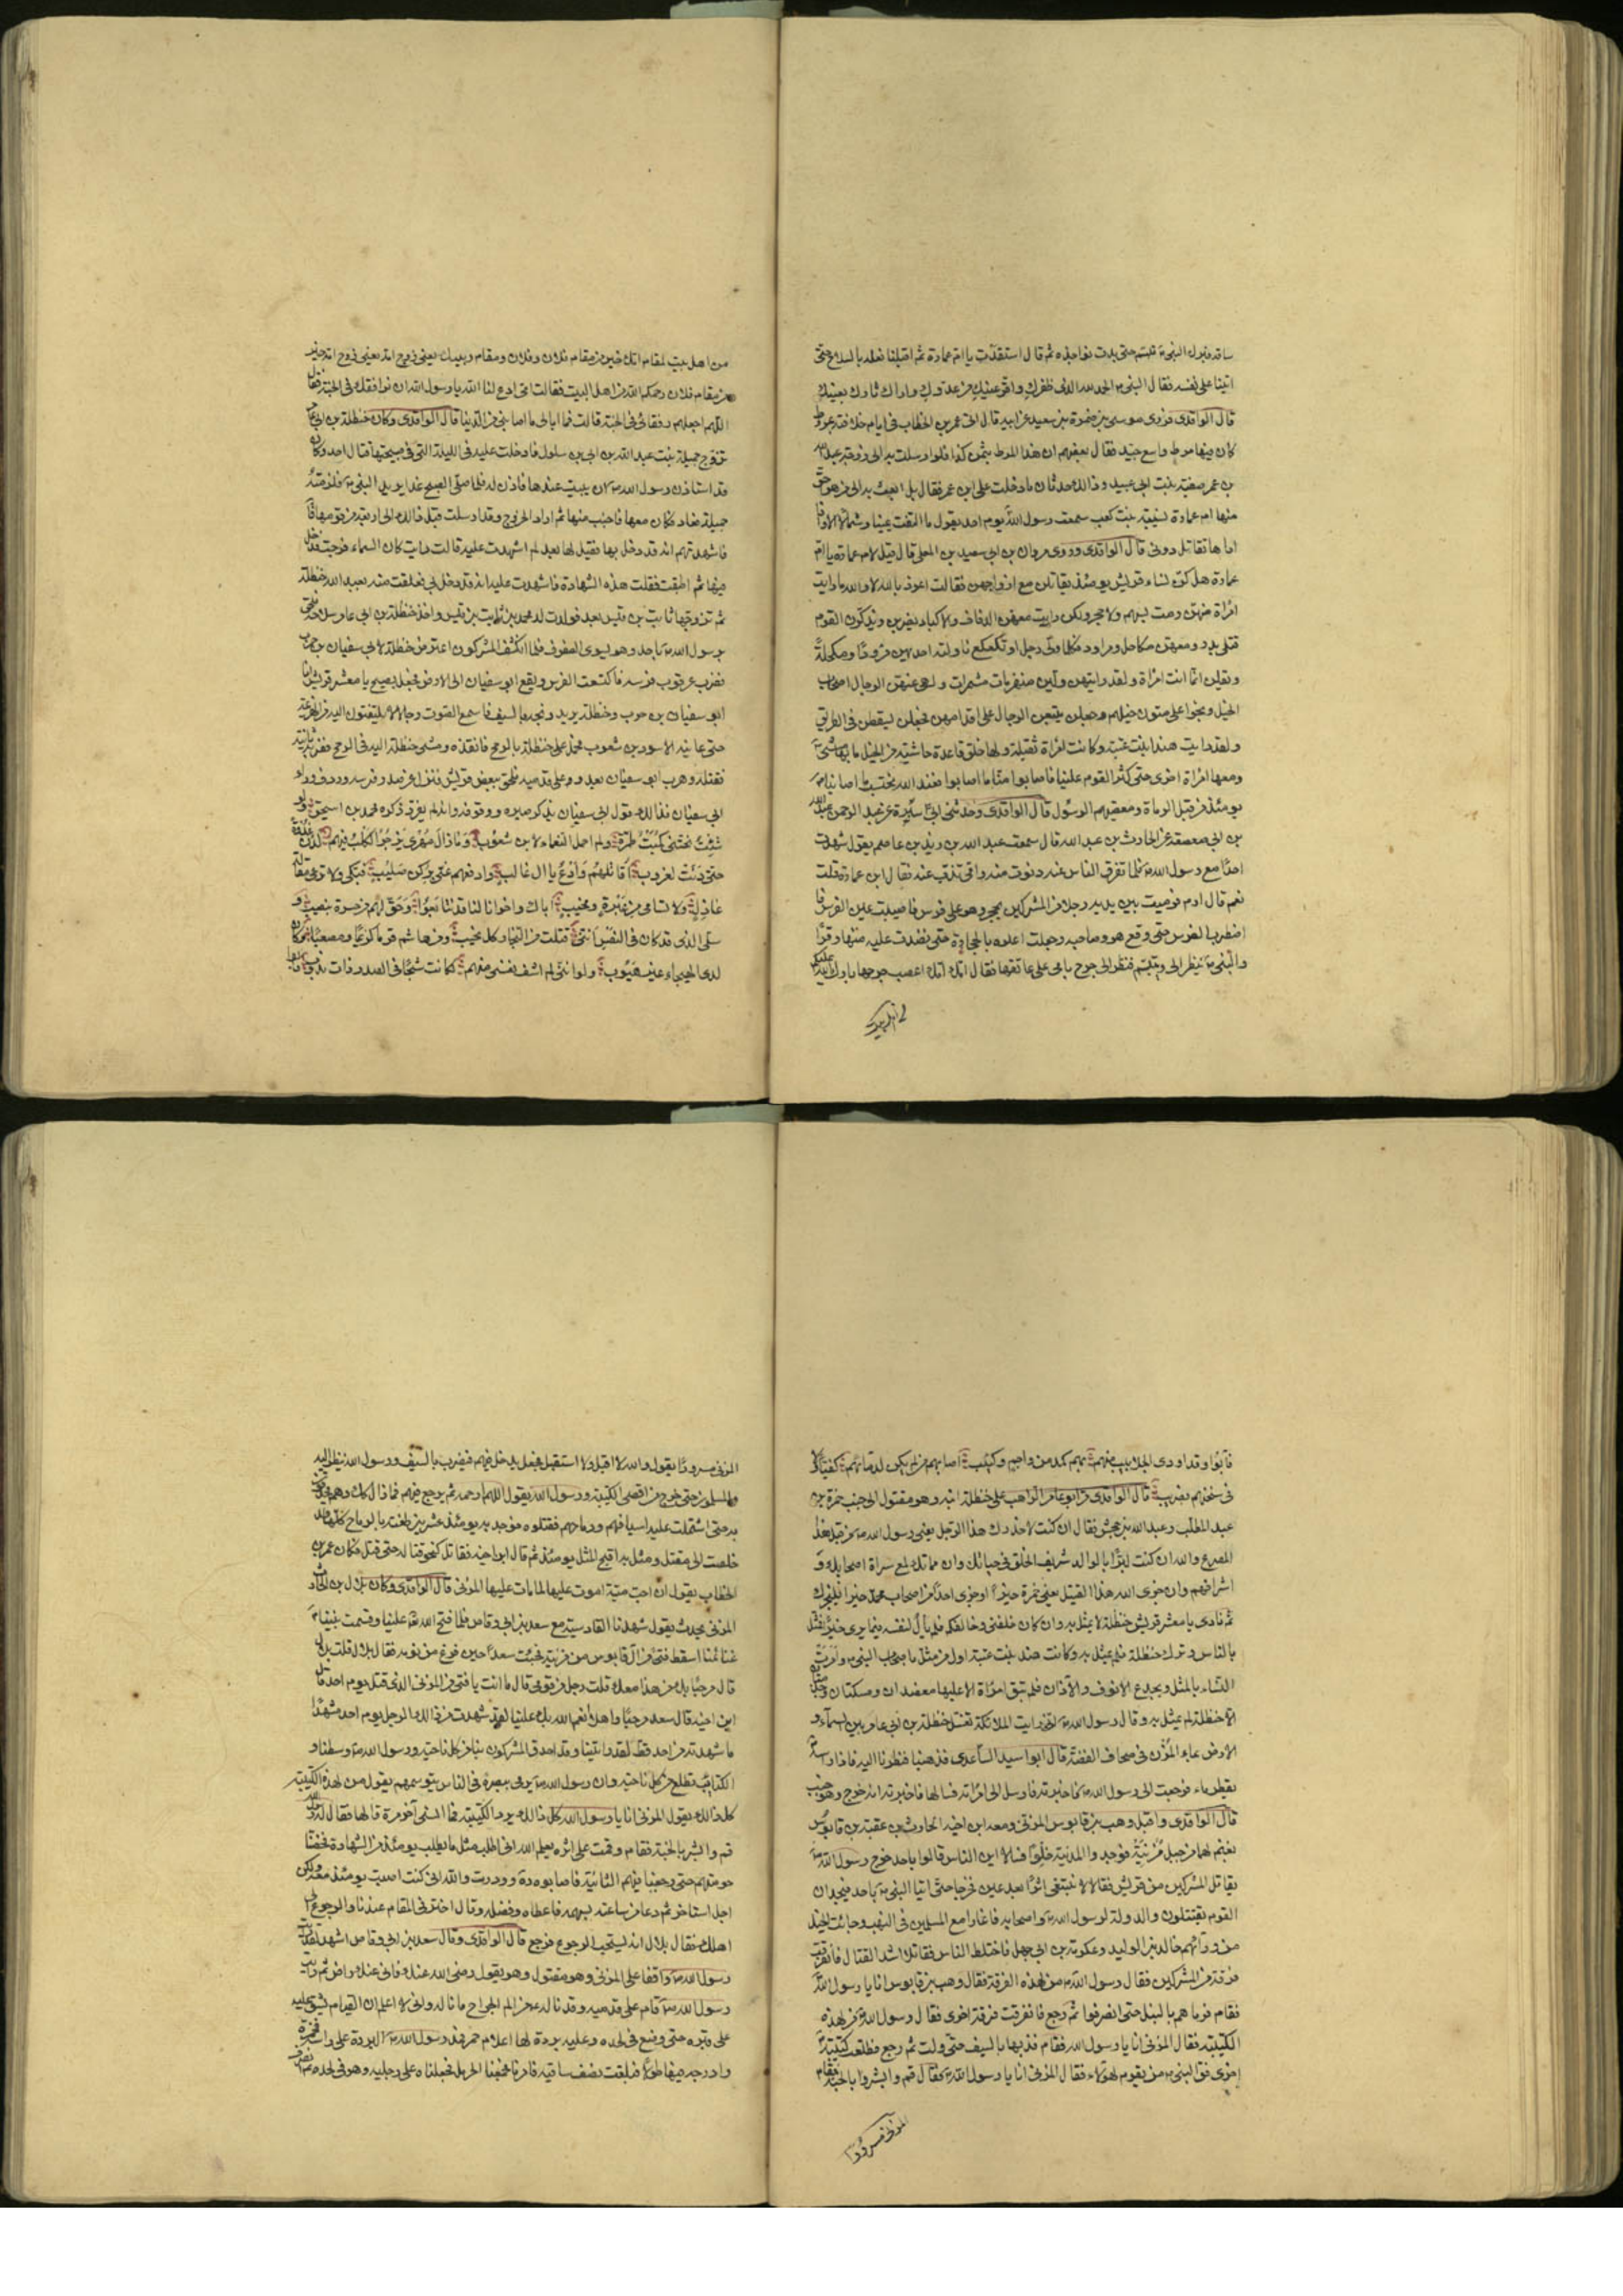 ساقه فبرك النبى ص تبسم حتى بدت نواجذه ثم قال استقدت يا ام عمارة ثم اقبلنا نعله بالسلاح حتى
اتينا على نفسه فقال النبى ص الحمد لله الذى ظفرك واقر عينك من عدوك واراك ثارك بعينك
قال الواقدى فروى موسى بن ضمرة بن سعيد عن ابيه قال اتى عمر بن الخطاب فى ايام خلافته بمروط
كان فيها مرط واسع جيد فقال بعضهم ان هذا المرط بثمن كذا فلو ارسلت به الى زوجة عبد الله
بن عمر صفية بنت ابى عبيد وذالك حدثان ما دخلت على ابن عمر فقال بل ابعث به الى من هو احق
منها ام عمارة نسيبة بنت كعب سمعت رسول الله يوم احد يقول ما التفت يمينا وشمالا الا وانا
اراها تقاتل دونى قال الواقدى وروى مروان بن ابى سعيد بن المعلى قال قيل لام عمارة يا ام
عمارة هل كن نساء قريش يومئذ يقاتلن مع ازواجهن فقالت اعوذ بالله لا والله ما رايت
امراة منهن رمت بسهم ولا حجر ولكن رايت معهن الدفاف والاكبار يضربن ويذكرن القوم
قتلى بدر ومعهن مكاحل ومراود فكلما ولى رجل او تكعكع ناولته احديهن مرودا ومكحلة
ويقلن انما انت امراة ولقد رايتهن ولين منهزمات مشمرات ولهى عنهن الرجال اصحاب
الخيل ونجوا على متون خيلهم وجعلن يتبعن الرجال على اقدامهن فجعلن يسقطن فى الطريق
ولقد رايت هندا بنت عتبة وكانت امراة ثقيلة ولها خلق قاعدة خاشية من الخيل ما بها مشى
ومعها امراة اخرى حتى كثر القوم علينا فاصابوا منا ما اصابوا فعند الله نحتسب ما اصابنا
يومئذ من قبل الرماة ومعصيتهم الرسول قال الواقدى وحدثنى ابن ابى سبرة عن عبد الرحمن بن عبد الله
بن ابى صعصعة عن الحارث بن عبد الله قال سمعت عبد الله بن زيد بن عاصم يقول شهدت
احدا مع رسول الله ص فلما تفرق الناس عنه دنوت منه وامى تذب عنه فقال ابن عمارة قلت
نعم قال ارم فرميت بين يديه رجلا من المشركين بحجر وهو على فرس فاصيبت عين الفرس فا
اضطرب الفرس حتى وقع هو وصاحبه وجعلت اعلوه بالحجارة حتى نضدت عليه منها وقرا
والنبى ص ينظر الى ويتبسم فنظر الى جرح بامى على عاتقها فقال امك امك اعصب جرحها بارك الله عليكم
من اهل بيت
من اهل بيت لمقام امك خير من مقام فلان وفلان ومقام ربيبك يعنى زوج امه يعنى زوج امه خير
من مقام فلان رحمكم الله من اهل البيت فقالت امى ادع لنا الله يا رسول الله ان نوافقك فى الجنة فقال
اللهم اجعلهم رفقائى فى الجنة قالت فما ابالى ما اصابنى من الدنيا قال الواقدى وكان حنظلة بن ابى عامر
تزوج جميلة بنت عبد الله بن ابى بن سلول فادخلت عليه فى الليلة التى فى صبيحتها قتال احد وكان
قد استاذن رسول الله ص ان يبيت عندها فاذن له فلما صلى الصبح غدا يريد النبى ص فلزمته
جميلة فعاد فكان معها فاجنب منها ثم اراد الخروج وقد ارسلت قبل ذالك الى اربعة من قومها فا
فاشهدتهم انه قد دخل بها فقيل لها بعد لم اشهدت عليه قالت رايت كان السماء فرجت فدخل
فيها ثم اطبقت فقلت هذه الشهادة فاشهدت عليه انه قد دخل بى فعلقت منه بعبد الله بن حنظلة
ثم تزوجها ثابت بن قيس بعد فولدت له محمد بن ثابت بن قيس واخذ حنظلة بن ابى عامر سلاحه فلحق
برسول الله ص باحد وهو يسوى الصفوف فلما انكشف المشركون اعترض حنظلة لابى سفيان بن حرب
فضرب عرقوب فرسه فاكتسعت الفرس ويقع ابو سفيان الى الارض فجعل يصيح يا معشر قريش انا
ابو سفيان بن حرب وحنظلة يريد ذبحه بالسيف فاسمع الصوت رجالا لا يلتفتون اليه من الهزيمة
حتى عاينه الاسود بن شعوب فحمل على حنظلة بالرمح فانفذه ومشى حنظلة اليه فى الرمح فضربه ثانية
فقتله وهرب ابو سفيان يعدو على قدميه فلحق ببعض قريش فنزل عن صدر فرسه وردف وراء
ابى سفيان فذالك قول ابى سفيان يذكر صبره ووقوفه وانه لم يفر ذكره محمد بن اسحق ولو
شئت نجتنى كميت طمرة ولم احمل النعماء لابن شعوب وما زال مهرى مزجر الكلب منهم لدن غدوة
حتى دنت لغروب اقاتلهم وادعو يا ال غالب وادفعهم عنى بركن صليب فبكى ولا ترعى مقالة
عاذل ولا تسامى من عبرة ونحيب اباك واخوانا لنا قد تتابعوا وحق لهم من حسرة بنصيب و
سلى الذى قد كان فى النفس اننى قتلت من النجار كل نجيب ومن هاشم قرما كريما ومصعبا وكان
لدى الهيجاء غير هيوب ولو اننى لم اشف نفسى منهم لكانت شجا فى الصدر ذات ندوب
فآبوا وقد اودى الجلابيب منهم بهم كمد من واجم وكئيب اصابهم من لم يكن لدمائهم كفيئا ولا
فى سنخهم بضريب قال الواقدى مر ابو عامر الراهب على حنظلة ابنه وهو مقتول الى جنب حمزة بن
عبد المطلب وعبد الله بن جحش فقال ان كنت لاحذرك هذا الرجل يعنى رسول الله ص من قبل هذا
المصرع والله ان كنت لبرا بالوالد شريف الخلق فى حياتك وان مماتك لمع سراة اصحابك و
اشرافهم وان جزى الله هذا القتيل يعنى حمزة خيرا او جزى احدا من اصحاب محمد خيرا فليجزك
ثم نادى يا معشر قريش حنظلة لا يمثل به وان كان خالفنى وخالفكم فلم يأل لنفسه فيما يرى خيرا فمثل
بالناس وترك حنظلة فلم يمثل به وكانت هند بنت عتبة اول من مثل باصحاب النبى ص وامرت
النساء بالمثل وبجدع الانوف والآذان فلم تبق امراة الا عليها معضدان ومسكتان
الا حنظلة لم يمثل به وقال رسول الله ص انى رايت الملائكة تغسل حنظلة بن ابى عامر بين السماء و
الارض بماء المزن فى صحاف الفضة قال ابو اسيد الساعدى فذهبنا فنظرنا اليه فاذا راسه
يقطر ماء فرجعت الى رسول الله ص فاخبرته فارسل الى امراته فسالها فاخبرته انه خرج وهو جنب
قال الواقدى واقبل وهب بن قابوس المزنى ومعه ابن اخيه الحارث بن عقبة بن قابوس
بغنم لهما من جبل مزينة فوجد والمدينة خلوا فسالا اين الناس قالوا باحد خرج رسول الله ص
يقاتل المشركين من قريش فقالا لا نبتغى اثرا بعد عين فخرجا حتى اتيا النبى ص باحد فيجدان
القوم يقتتلون والدولة لرسول الله ص واصحابه فاغارا مع المسلمين فى النهب وجاءت الخيل
من ورائهم خالد بن الوليد وعكرمة بن ابى جهل فاختلط الناس فقاتلا اشد القتال فانفرقت
فرقة من المشركين فقال رسول الله ص من لهذه الفرقة فقال وهب بن قابوس انا يا رسول الله
فقام فرماهم بالنبل حتى انصرفوا ثم رجع فانفرقت فرقة اخرى فقال رسول الله ص من لهذه
الكتيبة فقال المزنى انا يا رسول الله فقام فذبها بالسيف حتى ولت ثم رجع فطلعت كتيبة
اخرى فقال النبى ص من يقوم لهؤلاء فقال المزنى انا يا رسول الله ص فقال قم وابشر بالجنة فقام
المزنى مسرورا
المزنى مسرورا يقول والله لا اقيل ولا استقيل فجعل يدخل فيهم فيضرب بالسيف ورسول الله ينظر اليه
والمسلمون حتى خرج من اقصى الكتيبة ورسول الله يقول اللهم ارحمه ثم يرجع فيهم فما زال كذلك وهم محدقون
به حتى اشتملت عليه اسيافهم ورماحهم فقتلوه فوجد به يومئذ عشرين طعنة بالرماح كلها قد
خلصت الى مقتل ومثل به اقبح المثل يومئذ ثم قال ابن اخيه فقاتل كنحو قتاله حتى قتل فكان عمر بن
الخطاب يقول ان احب ميتة اموت عليها لما مات عليها المزنى قال الواقدى وكان بلال بن الحارث
المزنى يحدث يقول شهدنا القادسية مع سعد بن ابى وقاص فلما فتح الله علينا وقسمت بيننا
غنائمنا اسقط فتى من آل قابوس من مزينة فجئت سعدا حين فرغ من نومه فقال بلال قلت بلال
قال مرحبا بك من هذا معك قلت رجل من قومى قال ما انت يا فتى من المزنى الذى قتل يوم احد قال
ابن اخيه قال سعد مرحبا واهلا انعم الله بك علينا لقد شهدت من ذالك الرجل يوم احد مشهدا
ما شهدته من احد قط لقد رايتنا وقد احدق المشركون بنا من كل ناحية ورسول الله ص وسطنا و
الكتائب تطلع من كل ناحية وان رسول الله ص يرمى ببصره فى الناس يتوسمهم يقول من لهذه الكتيبة
كل ذالك يقول المزنى انا يا رسول الله كل ذالك يرد الكتيبة فما انسى آخر مرة قالها فقال له رسول الله
قم وابشر بالجنة فقام وقمت على اثره يعلم الله انى اطلب مثل ما يطلب يومئذ من الشهادة فخضنا
حومتهم حتى رجعنا فيهم الثانية فاصابوه ره ووددت والله انى كنت اصبت يومئذ معه ولكن
اجلى استاخر ثم دعا من ساعته بسهمه فاعطاه وفضله وقال اختر فى المقام عندنا والرجوع الى
اهلك فقال بلال انه يستحب الرجوع فرجع قال الواقدى وقال سعد بن ابى وقاص اشهد لقد رايت
رسول الله ص واقفا على المزنى وهو مقتول وهو يقول رضى الله عنك فانى عنك راض ثم رايت
رسول الله ص قام على قدميه وقد ناله من الم الجراح ما ناله وانى لا اعلم ان القيام ليشق عليه
على قبره حتى وضع فى لحده وعليه بردة لها اعلام حمر فمد رسول الله ص البردة على راسه فخمره
وادرجه فيها طولا فبلغت نصف ساقيه فامرنا فجمعنا الحرمل فجعلناه على رجليه وهو فى لحده ثم انصرف